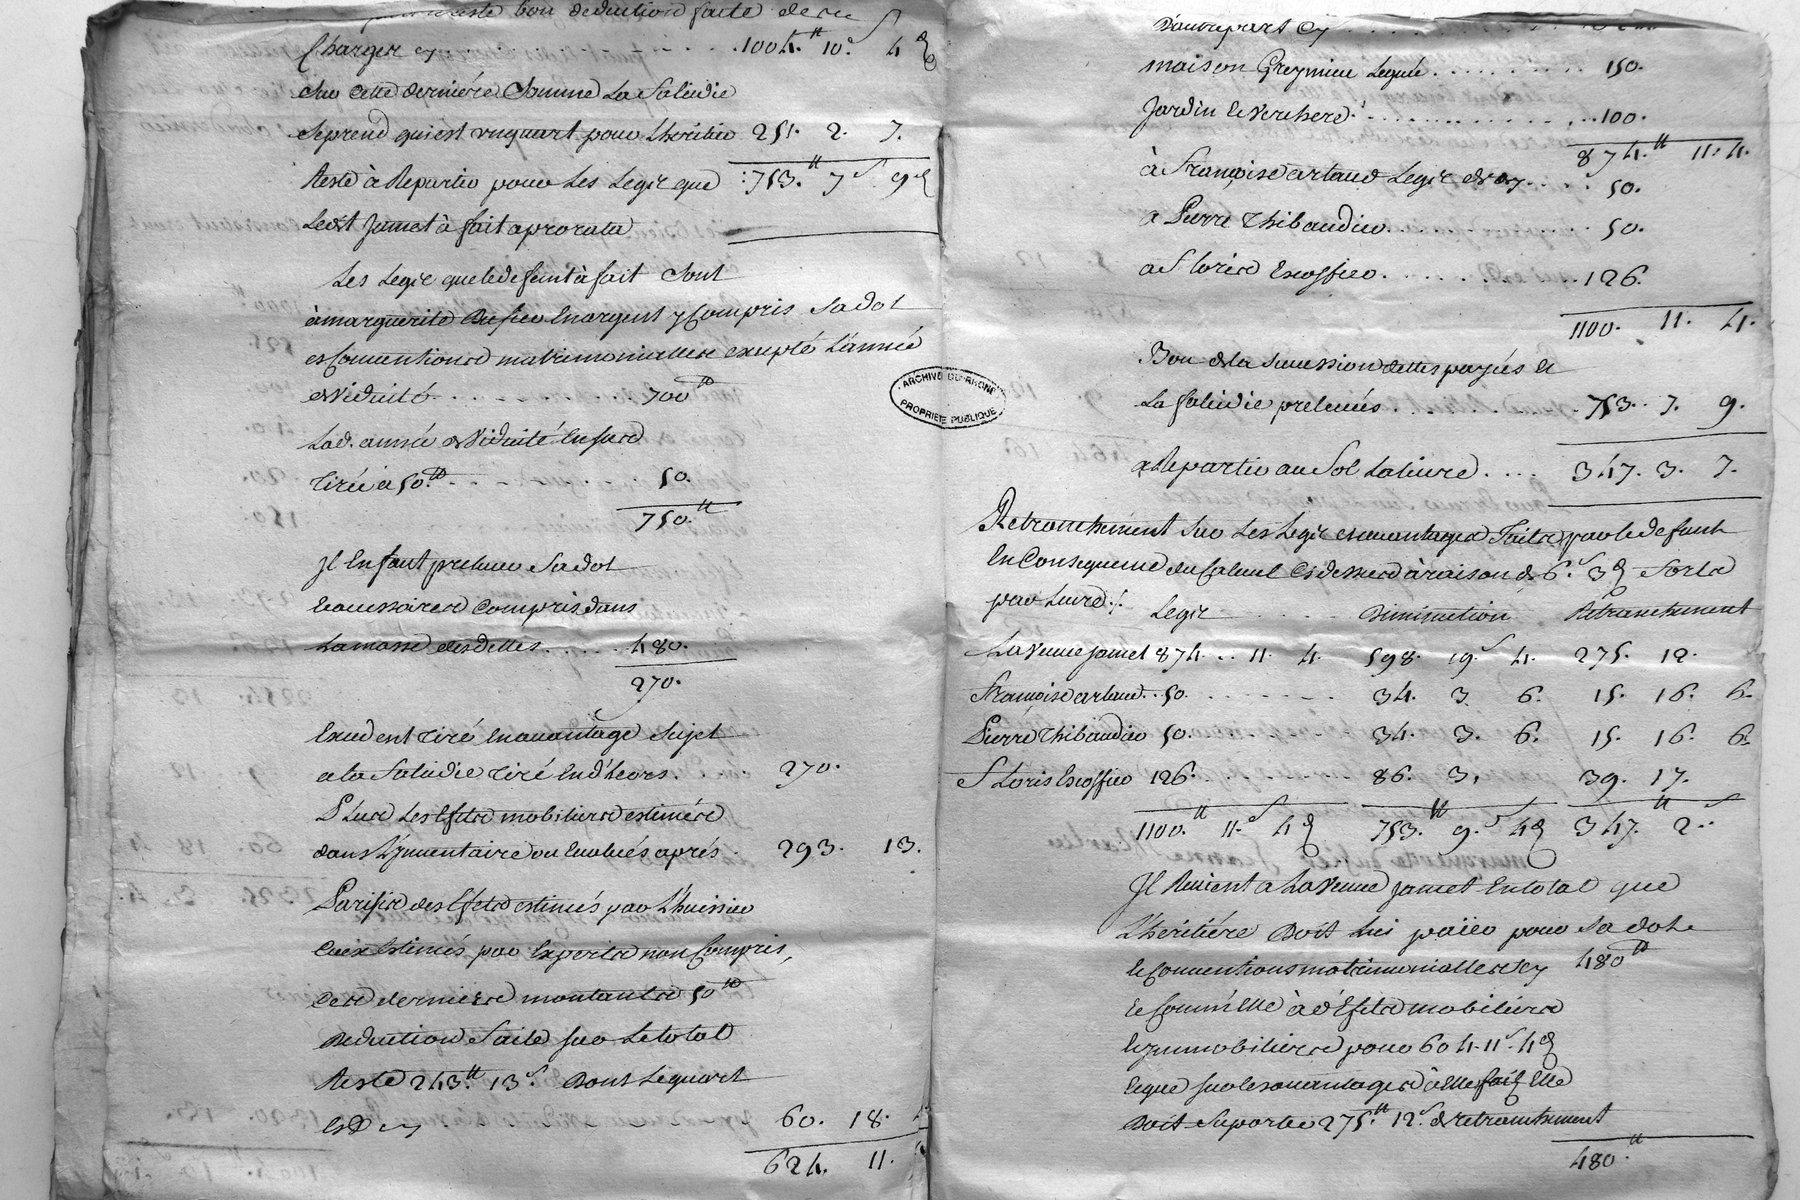 reste bon deduction faite de ce
Charger cy . . . . . . 1004.tt 10.s 4 d
Sur cette derniére Somme La Falcidie
Se prend qui est un quart pour L'héritiere 251. 2. 7.
Reste à Repartir pour Les Legs que 753.tt 7s 9d
Ledt Jamet à fait aprorata
Les Legs que le defunt à fait Sont
à marguerite Dufieu En argent y Compris Sa dot
et Conventions matrimonialles excepté L'année
de viduité . . . . . . 700tt
Lad. année de viduité En sus
Tirée à 50.tt . . . . . 50.
750.tt
Il En faut prelever Sa dot
Et accessoires Compris dans
La masse des dettes . . . . . 480.
270.
Excedent tiré En avantage Sujet
a la Falcidie tiré En d'hors. 270.
Plus Les Effets mobiliers estimés
dans L'ynventaire ou Evalués aprés . 293. 13.
Parisis des Effets estimés par L'huissier
Ceux Estimés par Experts non Compris,
Ces derniers montants 50tt
Deduction Faite sur Le total
Reste 243.tt 13.s Dont Le quart
Est Cy 60. 18. 4.
624. 11.
D'autrepart Cy
maison Greymieu Leguée . . . . . . . 150.
Jardin Et verchere . . . . . . . . . 100.
874.tt 11. 4.
à Françoise artaud Legs de cy . . . . 50.
a Pierre Thibaudier . . . . . . . 50.
a Floris Escoffier . . . . . . . 126.
1100. 11. 4.
Bon de la Succession dettes payées Et
La falcidie prelevées . . . . . . . 753. 7. 9.
a Repartir au Sol La livre . . . . 347. 3. 7.
Retranchement Sur Les Legs et avantages Faits par le defunt
En Consequence du Calcul Ci dessus à raison de 6.s 3d Forts
par Livre.
Legs Diminution Retranchement
La Veuve Jamet 874. . . 11. 4. 598. 19.s 4. 275. 12.
Françoise artaud . . 50. . . . . . . 34. 3. 6. 15. 16. 6.
Pierre Thibaudier 50. . . . . . . 34. 3. 6. 15. 16. 6.
Floris Escoffier 126. . . . . . . 86. 3. 39. 17.
1100.tt 11.s 4d 753.tt 9.s 4d 347.tt 2.s
Il Revient a La Veuve Jamet En total que
L'heritiére Doit Lui païer pour Sa dot
Et Conventions matrimonialles Cy 480tt
Et Comm'Elle à d'Effets mobiliers
Et ymmobiliers pour 604.11s 4d
Et que sur les avantages à Elle fait Elle
Doit Suporter 275.tt 12.s de retranchement
480.tt
ARCHIVE DU RHONE
PROPRIETE PUBLIQUE